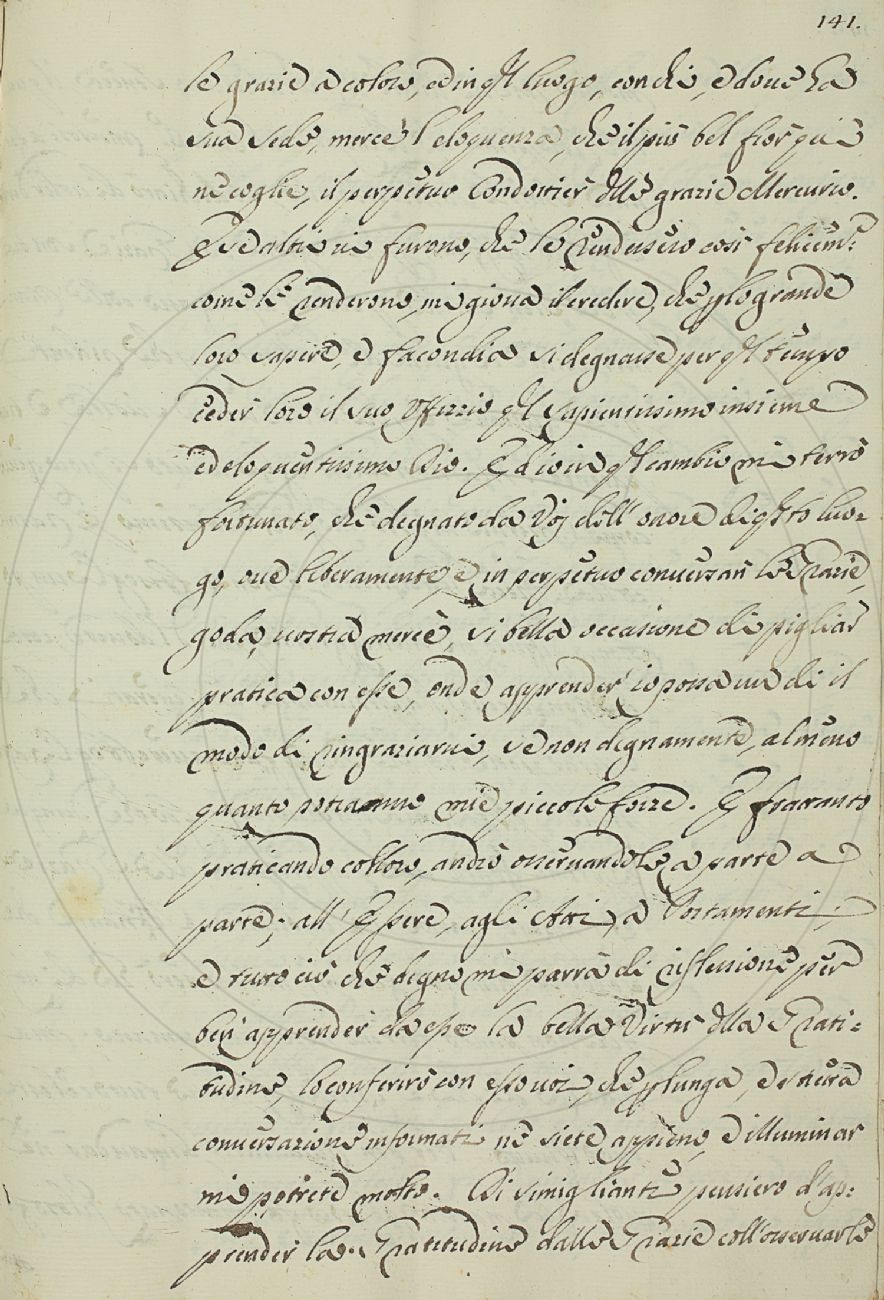 141.
le grazie a coloro, ed in qsl luogo, con chi, e dove ha
sua sede, mercè l'eloquenza, che il più bel fior qui
ne coglie, il perpetuo Condottier dlle grazie Mercurio.
E se altri vi furono, che le renderono così felicem.e
come le renderono, mi giova il credere, che p lo grande
loro sapere, e facondia si degnasse per qsl tempo
ceder loro il suo Offizio ql sapientissimo insieme
ed eloquentissimo Dio. Ed io in qsl cambio mi terrò
fortunato, che degnato da Voj dell' onore di qsto luo-
go, ove liberamente, e in perpetuo conversan le Grazie,
goda, vostra mercè, sì bella occasione di pigliar
pratica con esse, onde apprender' io possa un dì il
modo di ringraziarvi, se non degnamente, almeno
quanto potranno mie piccole forze. E frattanto
praticando con loro, andrò osservandole a parte a
parte; all' Opere, agli Atti, a Portamenti;
e tutto ciò che degno mi parrà di riflessione per
ben apprender da esse la bella Virtù dlla Grati-
tudine, lo conferirò con esso voi, che p lunga, e stretta
conversazione informati ne siete appieno, e illuminar
mi potrete molto. Di simigliante pensiero d'ap-
prender la Gratitudine dalle Grazie coll'osservarle